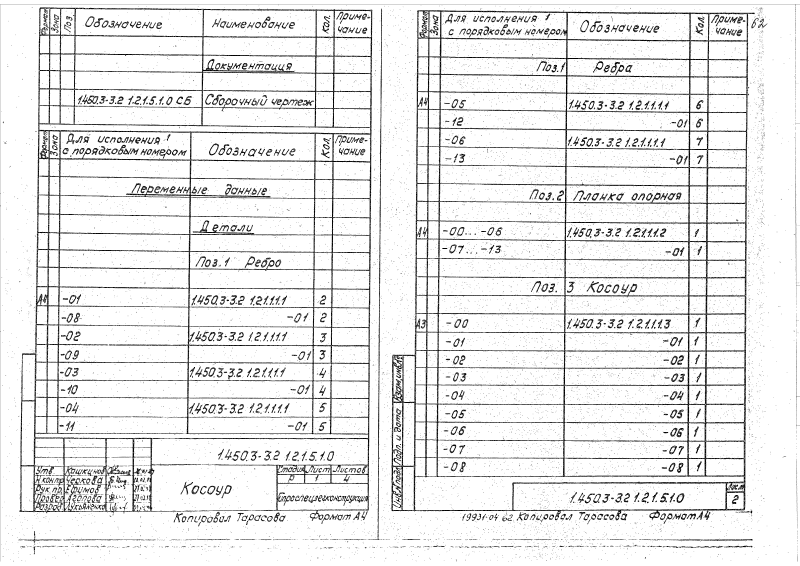 Формат Зона Поз. Обозначение Наименование Кол. Приме-чание
Документация
1.450.3-3.2 1.2.1.5.1.0 СБ Сборочный чертеж
Формат Зона Для исполнения с порядковым номером Обозначение Кол. Приме-чание
Переменные данные
Детали
Поз.1 Ребро
А4 -01 1.450.3-3.2 1.2.1.1.1.1 2
-08 -01 2
-02 1.450.3-3.2 1.2.1.1.1.1 3
-09 -01 3
-03 1.450.3-3.2 1.2.1.1.1.1 4
-10 -01 4
-04 1.450.3-3.2 1.2.1.1.1.1 5
-11 -01 5
1.450.3-3.2 1.2.1.5.1.0
Утв. Кашкинов
Н.контр. Черкова
Рук.пр. Ефимов
Провер. Агапова
Разраб. Лукьяненко
Косоур
Стадия Лист Листов
Р 1 4
Копировал Тарасова Формат А4
62
Формат Зона Для исполнения с порядковым номером Обозначение Кол. Приме-чание
Поз.1 Ребра
А4 -05 1.450.3-3.2 1.2.1.1.1.1 6
-12 -01 6
-06 1.450.3-3.2 1.2.1.1.1.1 7
-13 -01 7
Поз.2 Планка опорная
А4 -00... -06 1.450.3-3.2 1.2.1.1.1.2 1
-07...-13 -01 1
Поз. 3 Косоур
А3 -00 1.450.3-3.2 1.2.1.1.1.3 1
-01 -01 1
-02 -02 1
-03 -03 1
-04 -04 1
-05 -05 1
-06 -06 1
-07 -07 1
-08 -08 1
Инв.№подл. Подп. и дата Взам.инв.№
1.450.3-3.2 1.2.1.5.1.0
Лист
2
19931-04 62 Копировал Тарасова Формат А4